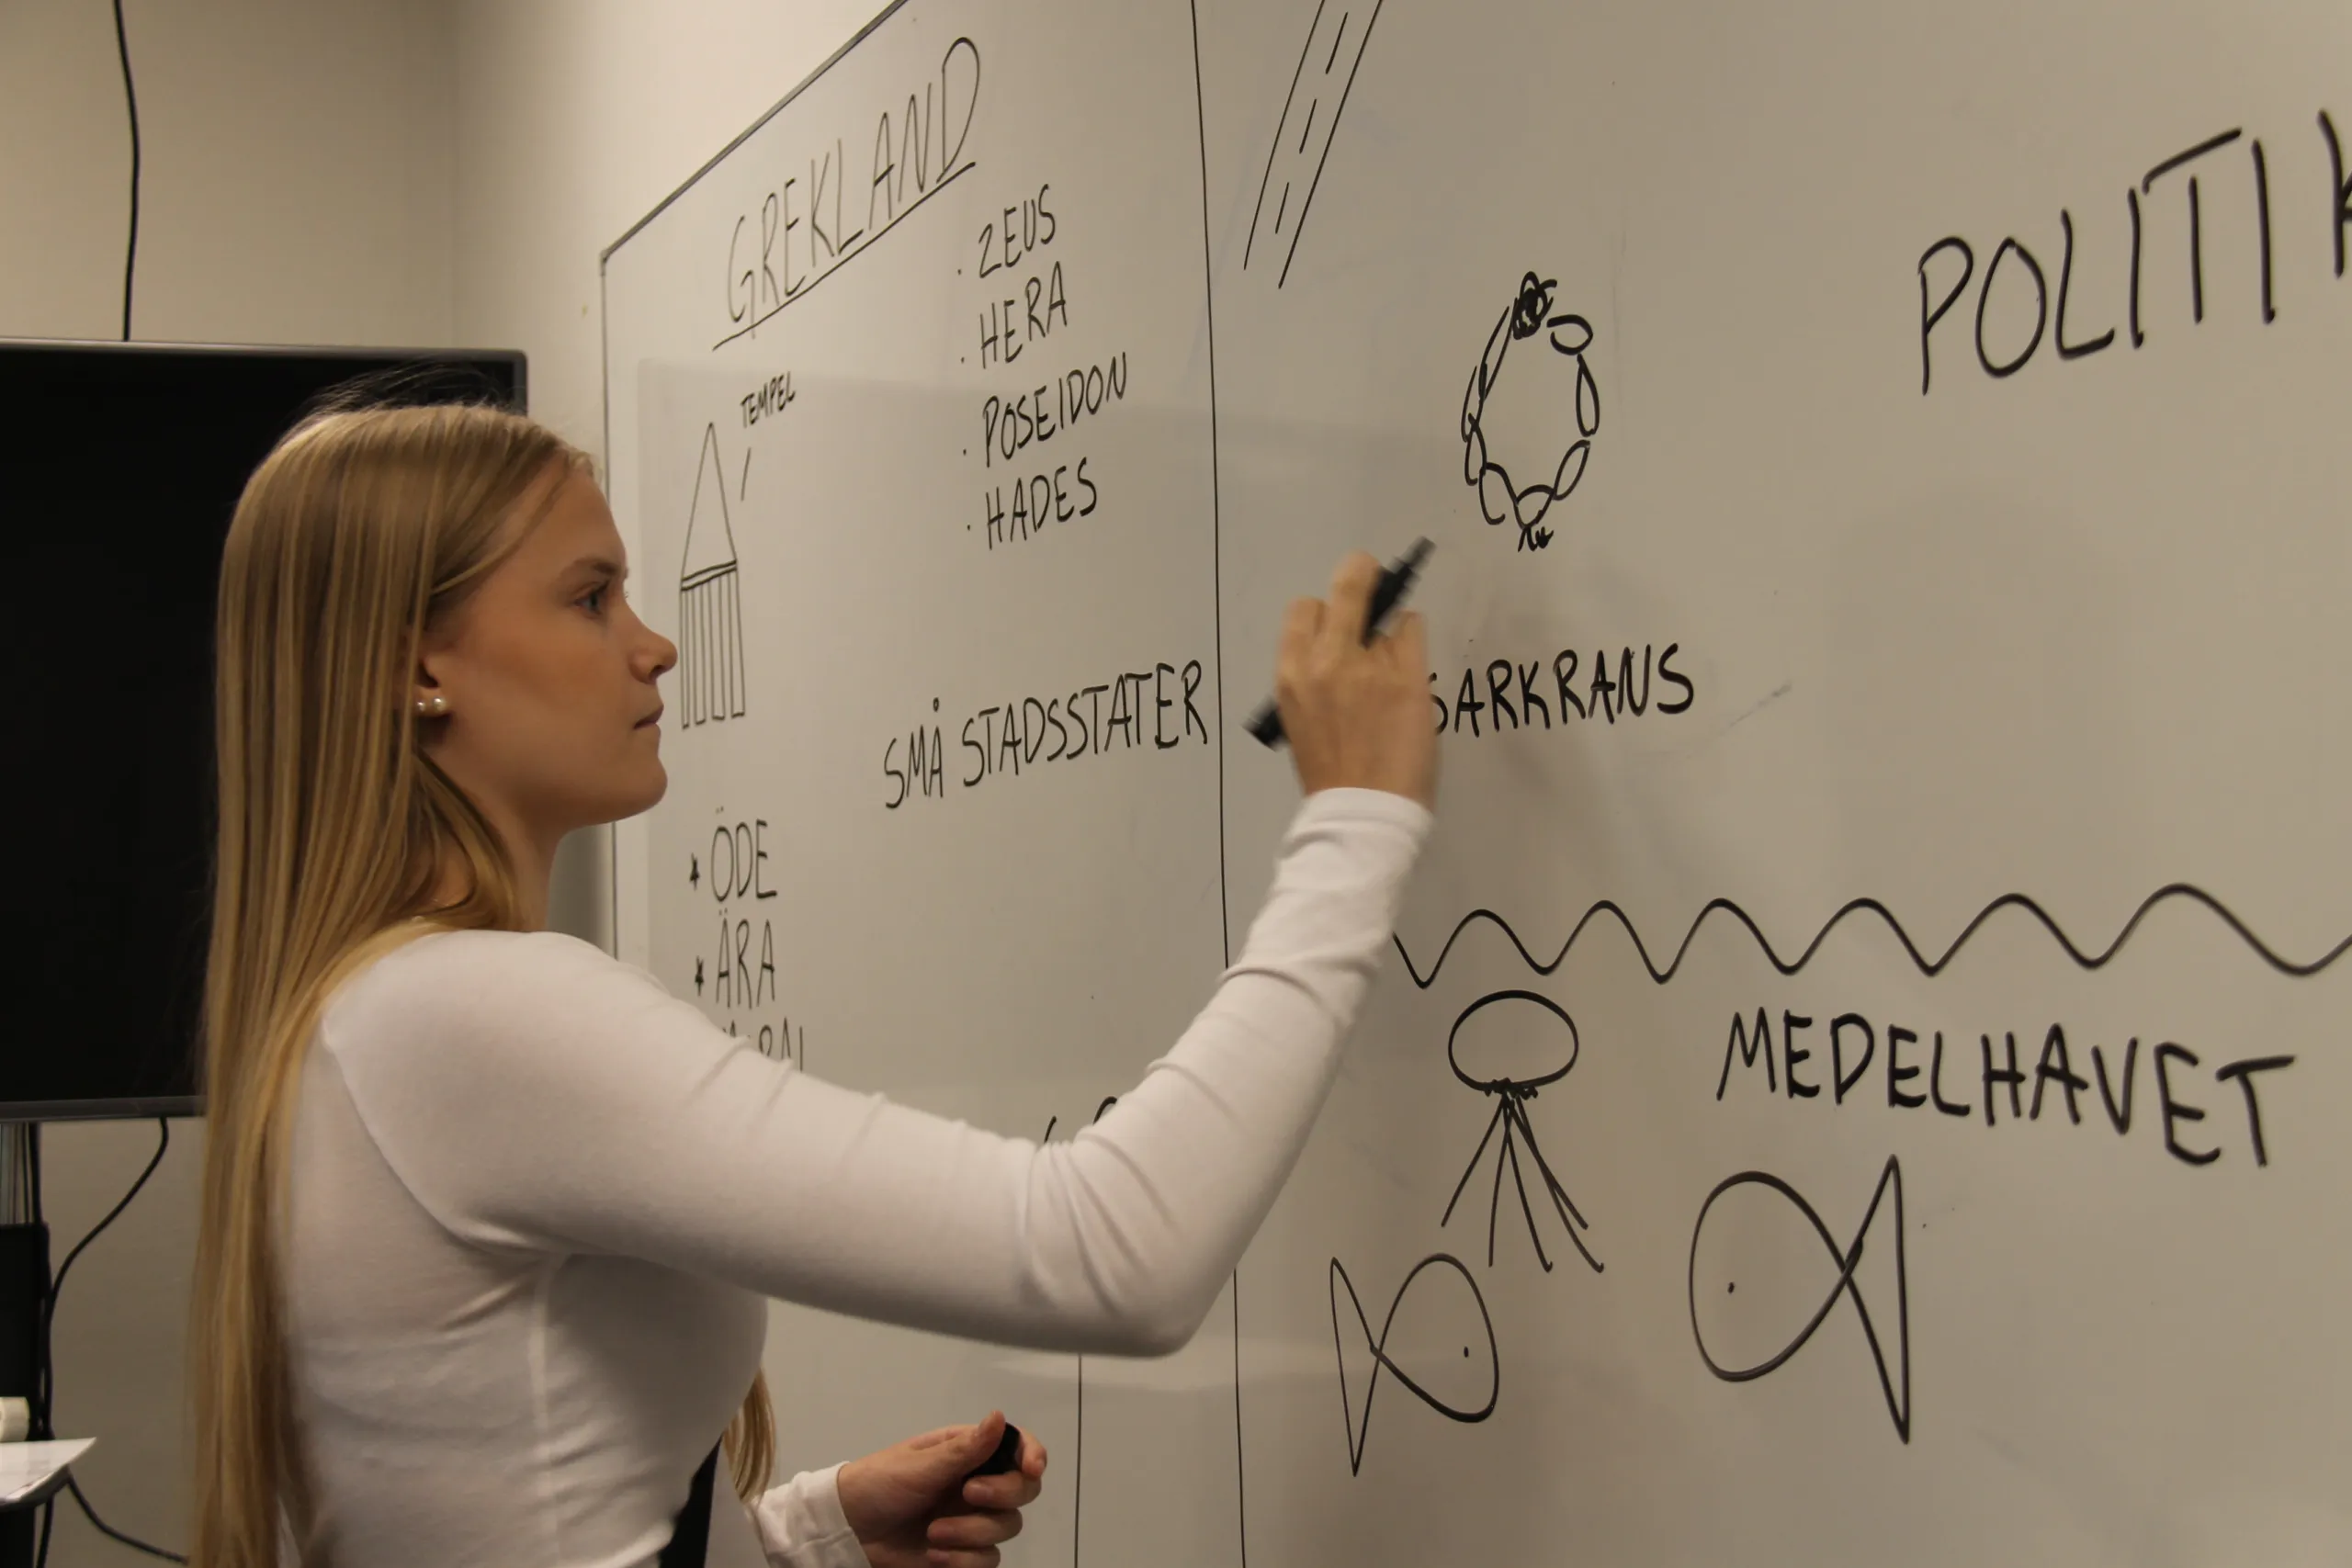 GREKLAND
· ZEUS
· HERA
· POSEIDON
· HADES
TEMPEL
SMÅ STADSSTATER
* ÖDE
* ÄRA
POLITIK
SARKRANS
MEDELHAVET